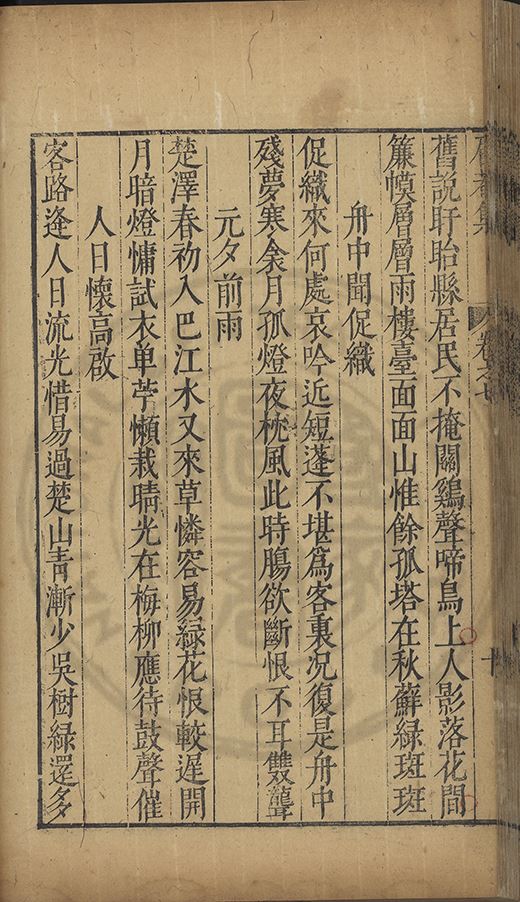 集 卷之七 十
舊說盱眙縣居民不掩關鷄聲啼鳥上人影落花間
簾幙層層雨樓臺面面山惟餘孤塔在秋蘚綠斑斑
舟中聞促織
促織來何處哀吟近短蓬不堪爲客裏况復是舟中
殘夢寒衾月孤燈夜枕風此時膓欲斷恨不耳雙聾
元夕前雨
楚澤春初入巴江水又來草憐容易緑花恨較遲開
月暗燈慵試衣单苧懶裁晴光在梅柳應待鼓聲催
人日懷高啟
客路逢人日流光惜易過楚山青漸少吳樹緑還多